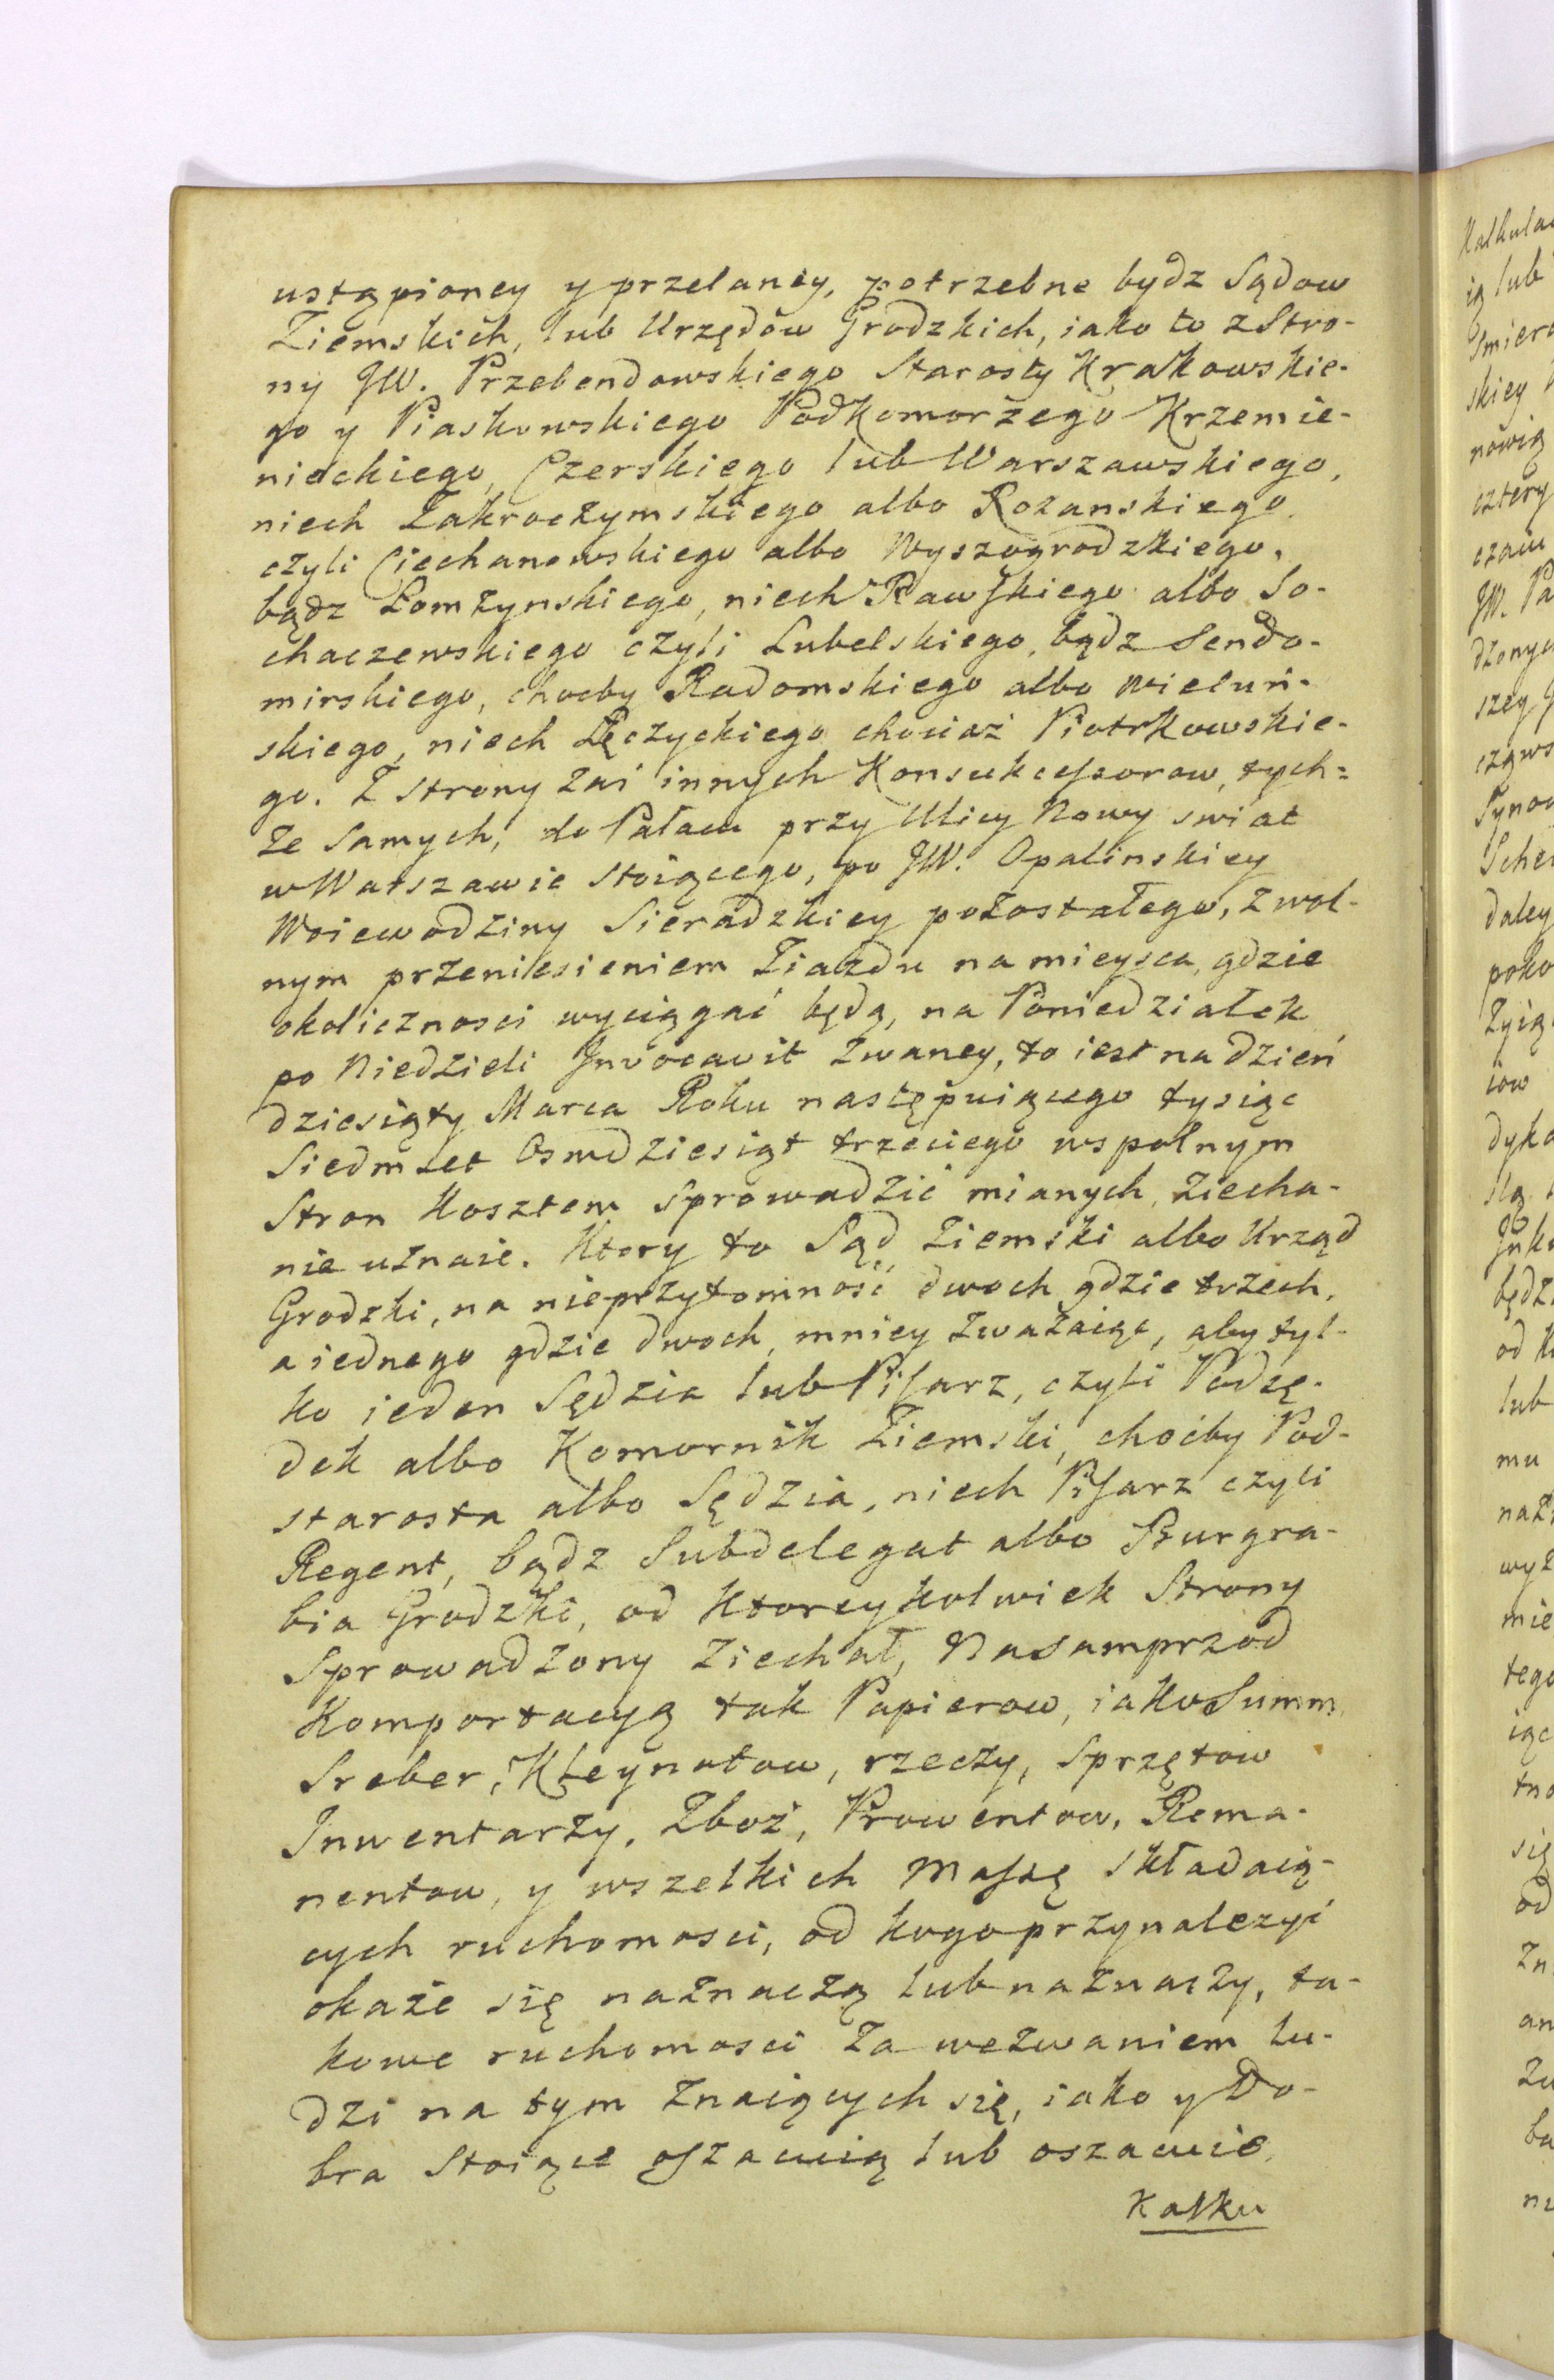 ustąpioney y przelaney, potrzebne bydz Sądow
Ziemskich, lub Urzędów Grodzkich, iako to z Stro-
ny JW. Przebendowskiego Starosty Krakowskie-
go y Piaskowskiego Podkomorzego Krzemie-
nieckiego, Czerskiego lub Warszawskiego,
niech Zakroczymskiego albo Rozanskiego
czyli Ciechanowskiego albo Wyszogrodzkiego,
bądz Łomzynskiego, niech Rawskiego albo So-
chaczewskiego czyli Lubelskiego, bądz Sendo-
mirskiego, choćby Radomskiego albo Wieluń-
skiego, niech Łęczyckiego chociaż Piotrkowskie-
go. Z strony zaś innych Konsukcessorow, tych=
że samych, do Pałacu przy Ulicy Nowy swiat
w Warszawie stoiącego, po JW. Opalinskiey
Woiewodziny Sieradzkiey pozostałego, z wol-
nym przeniesieniem Ziazdu na mieysca, gdzie
okolicznosci wyciągać będą, na Poniedziałek
po Niedzieli Invocavit zwaney, to iest na dzień
dziesiąty Marca Roku następuiącego tysiąc
Siedmset Osmdziesiąt trzeciego wspolnym
Stron Kosztem sprowadzić mianych, ziecha-
nie uznaie. Ktory to Sąd Ziemski albo Urząd
Grodzki, na nieprzytomność dwoch gdzie trzech,
a iednego gdzie dwoch, mniey zważaiąc, aby tyl-
ko ieden Sędzia lub Pisarz, czyli Podsę-
dek albo Komornik Ziemski, choćby Pod-
starosta albo Sędzia, niech Pisarz czyli
Regent, bądz Subdelegat albo Burgra-
bia Grodzki, od Ktoreykolwiek Strony
Sprowadzony ziechał, Nasamprzod
Komportacyą tak Papierow, iako Summ,
Sreber, Kleynotow, rzeczy, Sprzętow
Inwentarzy, Zboż, Prowentow, Rema-
nentow, y wszelkich Massę składaią-
cych ruchomosci, od kogo przynależyć
okaże się naznaczą lub naznaczy, ta-
kowe ruchomosci za wezwaniem lu-
dzi na tym znaiących się, iako y Do-
bra Stoiące oszacuią lub oszacuie,
Kalku